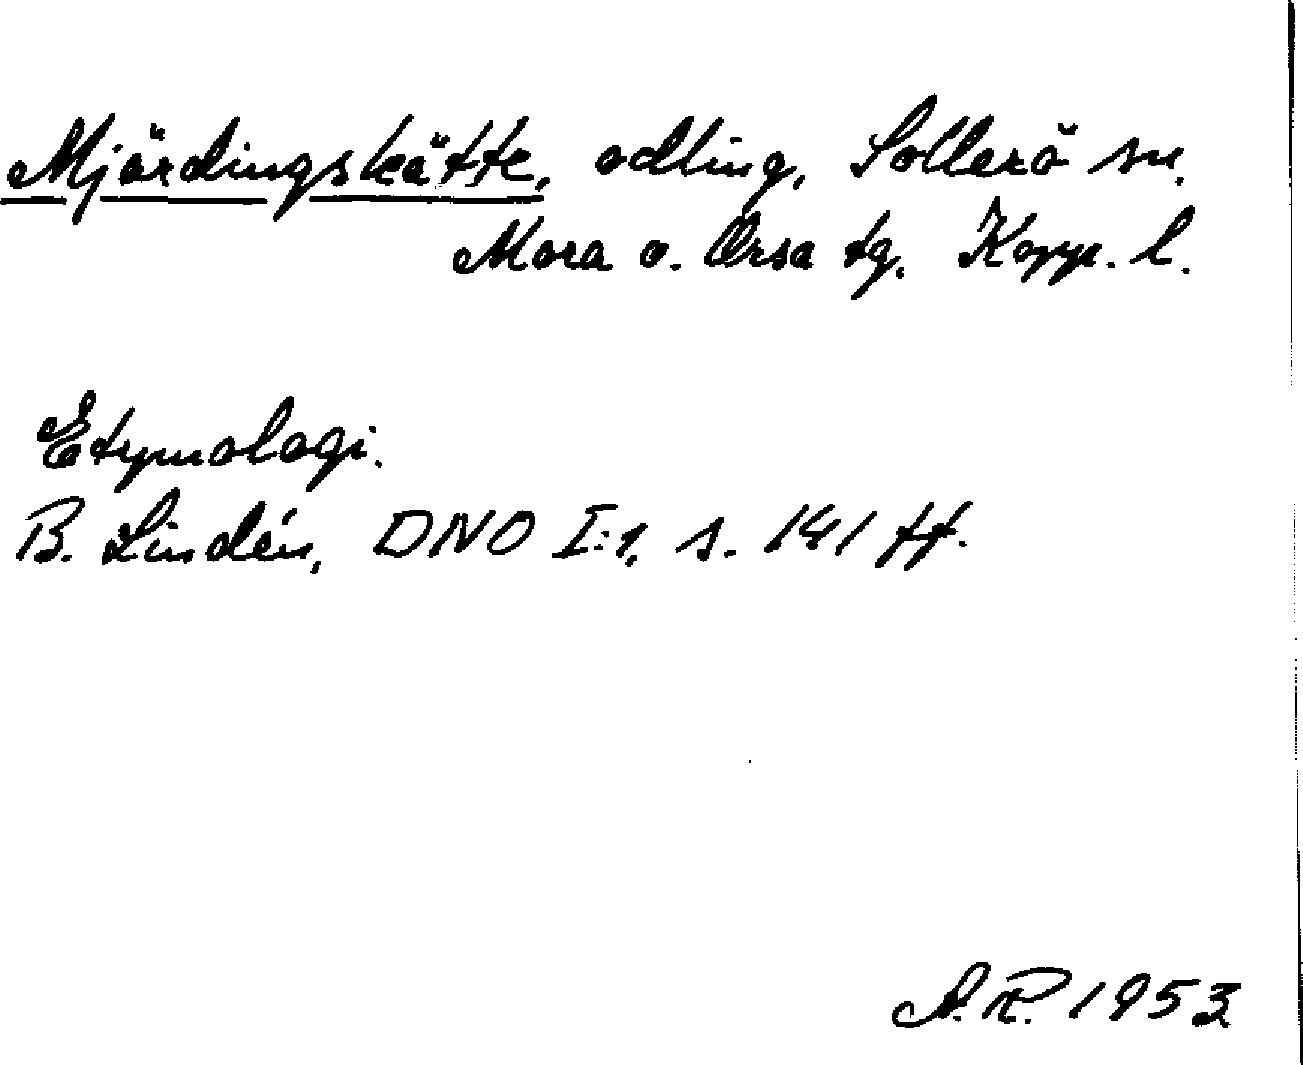 Mjördingskätte, odling, Sollerö sn.
Mora o. Orsa tg. Kopp. l.
Etymologi.
B. Lindén, DNO I:1, s. 141 ff.
A.R. 1953